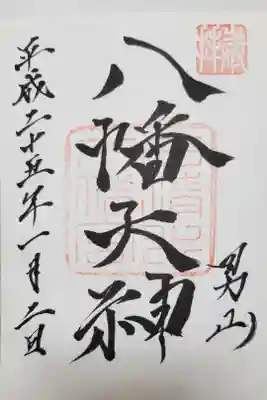 奉拝
男山
八幡大神
平成二十五年一月二日